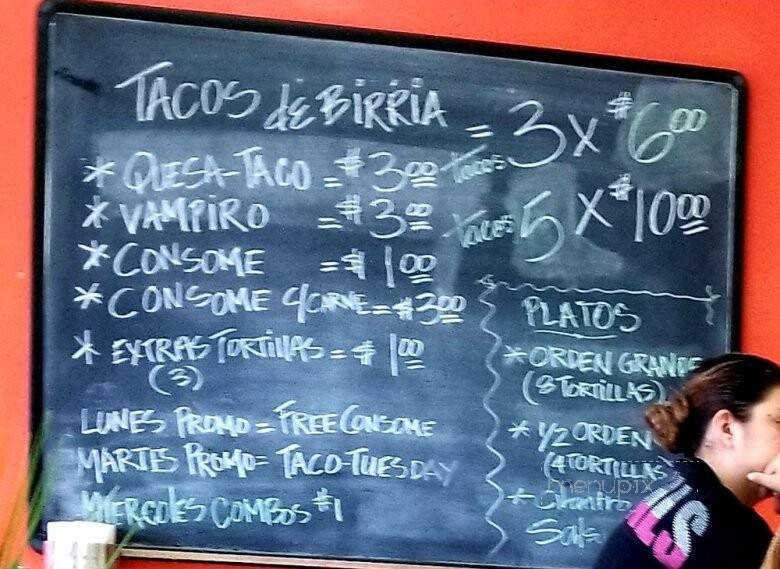 TACOS de BIRRIA = 3 X #6.00
* QUESA-TACO = $3.00
tacos
* VAMPIRO = $3.00
tacos 5 X #10.00
* CONSOME = $1.00
* CONSOME C/CARNE = $3.00
* EXTRAS TORTILLAS = $1.00
(3)
LUNES PROMO = FREE CONSOME
MARTES PROMO = TACO-TUESDAY
MIERCOLES COMBOS #1
PLATOS
* ORDEN GRANDE
(8 TORTILLAS)
* 1/2 ORDEN
(4 TORTILLAS
* Cilantro
Salsa
menupix
LS